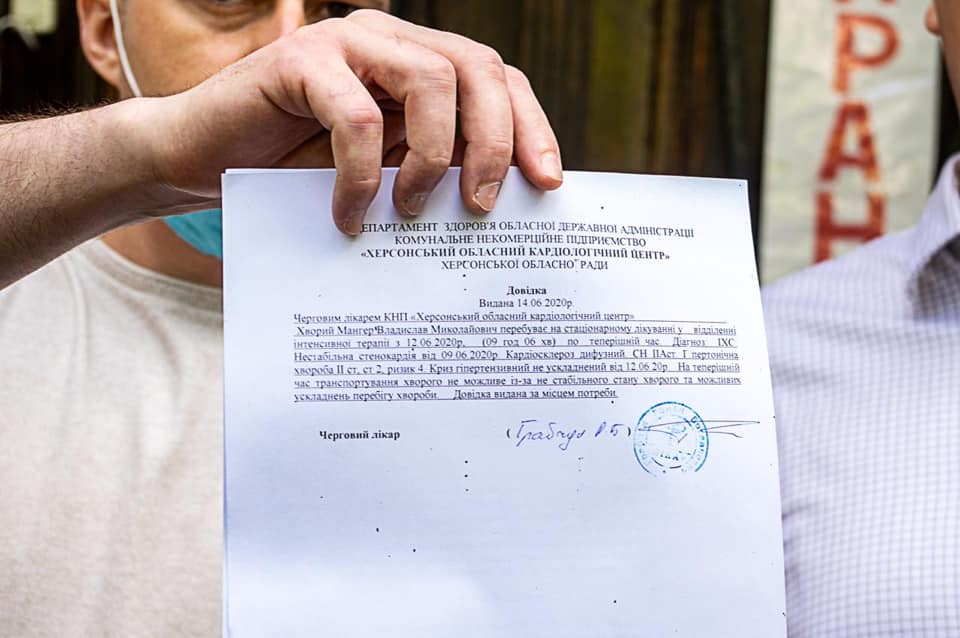 ДЕПАРТАМЕНТ ЗДОРОВ'Я ОБЛАСНОЇ ДЕРЖАВНОЇ АДМІНІСТРАЦІЇ
КОМУНАЛЬНЕ НЕКОМЕРЦІЙНЕ ПІДПРИЄМСТВО
«ХЕРСОНСЬКИЙ ОБЛАСНИЙ КАРДІОЛОГІЧНИЙ ЦЕНТР»
ХЕРСОНСЬКОЇ ОБЛАСНОЇ РАДИ
Довідка
Видана 14.06.2020р.
Черговим лікарем КНП «Херсонський обласний кардіологічний центр»
Хворий Мангер Владислав Миколайович перебуває на стаціонарному лікуванні у відділенні
інтенсивної терапії з 12.06.2020р, (09 год 06 хв) по теперішній час. Діагноз: ІХС.
Нестабільна стенокардія від 09.06.2020р. Кардіосклероз дифузний. СН ІІАст. Гіпертонічна
хвороба ІІ ст, ст 2, ризик 4. Криз гіпертензивний не ускладнений від 12.06.20р. На теперішній
час транспортування хворого не можливе із-за не стабільного стану хворого та можливих
ускладнень перебігу хвороби. Довідка видана за місцем потреби.
Черговий лікар
РАН